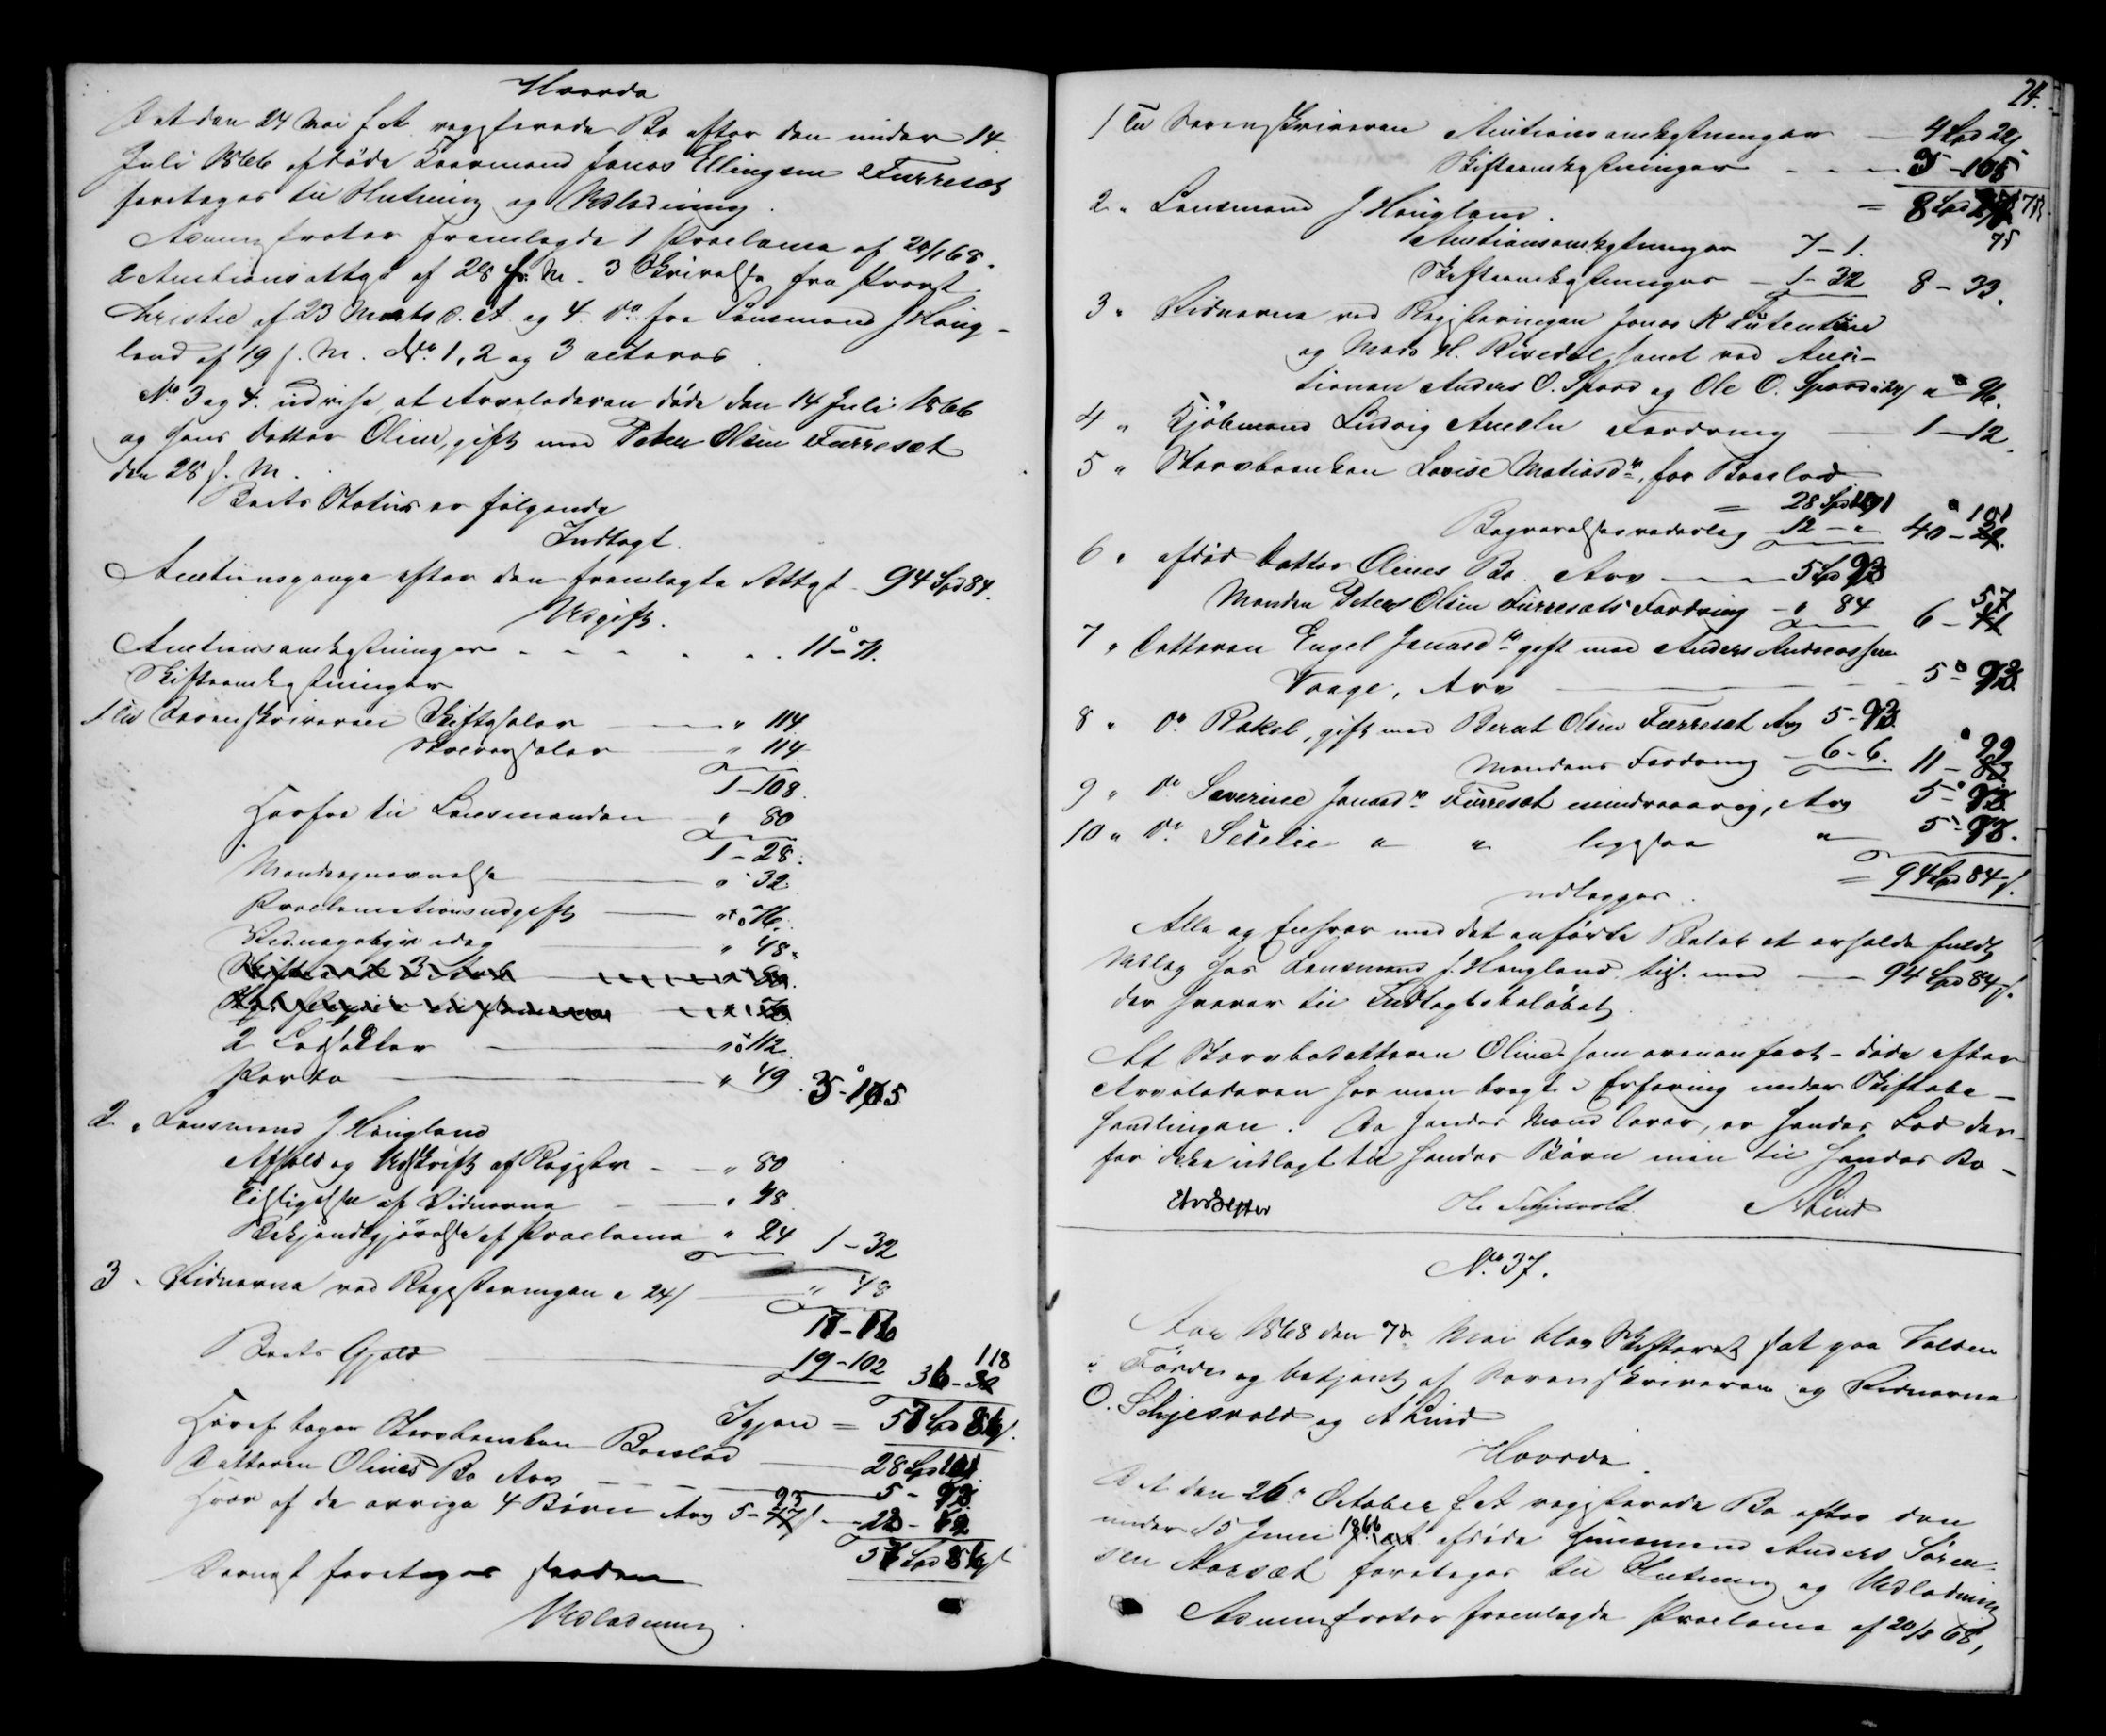 Hvorda
Det den 24 Mai f. A. registerede Bo efter den under 14
Juli 1866 afdøde Kaarmand Jonas Ellingsen Furreset
foretages til Slutning og Udlodning.
Administrator fremlagde 1 Proclama af 20/1 68.
2 Auctionsattest af 28 f. M. 3 Skrivelse fra Provst
Christie af 23 Marts d. A. og 4. Do fra Lensmand J Houg-
land af 19 f. M. No 1, 2 og 3 acteres.
No 3 og 4. udvise at Arveladeren døde den 14 Juli 1866
og hans Datter Oline, gift med Peter Olsen Furreset
den 28 s. M.
Boets Status er følgende
Indtægt.
Auctionspenge efter den fremlagte Attest - 94 Spd 84.
Udgift.
Auctionsomkostninger - - - - - 11 - 71.
Skifteomkostninger
1 Til Sorenskriveren Skiftesalær — " 114.
Skriversalær — " 114
1 - 108.
Herfra til Lensmanden — " 80
1 - 28.
Mandsopnævnelse — " 32
Proclamationsudgift — " 76.
Vidnegebyr idag — " 48.
2 Lodsedler — " 112
Porto — " 49. 3 - 105
2 " Lensmand J. Hougland
Afhold og Udskrift af Registr. - - " 80
Tilsigelse af Vidnerne — " 48
Bekjendtgjørelse af Proclama " 24 1 - 32
3 " Vidnerne ved Registeringen a 24/ — " 48
17 - 16
Boets Gjæld — 19 - 102 36 - 118
Igjen = 57 Spd 86 s.
Heraf tager Stervboenken Boeslod — 28 Spd 101
Datteren Olines Bo Arv — 5 - 93
Hver af de øvrige 4 Børn Arv 5 - 93 — 23 -
57 Spd 86 s
Dernæst foretages saadan
Udlodning.
24.
1 Til Sorenskriveren Auctionsomkostninger — 4 Spd
Skifteomkostninger - - - 3 - 105
= 8 Spd
2 " Lensmand J Hougland.
Auctionsomkostninger 7 - 1.
Skifteomkostninger - 1 - 32 8 - 33.
3 " Vidnerne ved Registeringen Jonas K
og Mads H. Rivedal samt ved Auc-
tionen Anders O. Spord og Ole O. Spord a 24/ " 96.
4 " Kjøbmand Ludvig Fordring — 1 - 12.
5 " Stervboenken Lovise Matiasdr, for Boeslod
= 28 Spd 101
Begravelsesvederlag 12 - " 40 - 101
6 " afdød Datter Olines Bo Arv — 5 Spd 93
Manden Peter Olsen Furresets Fordring - " 84 6 - 57
7 " Datteren Engel Jonasdr gift med Anders Andreassen
Vaage, Arv — 5 - 93
8 " Do Rakel, gift med Bernt Olsen Furreset Arv 5 - 93
Mandens Fordring - 6 - 6. 11 - 99
9 " Do Severine Jonasdr Furreset mindreaarig, Arv 5 - 93
10 " Do Secelie " " ligesaa " 5 - 93.
= 94 Spd 84 s.
udlægges.
Alle og Enhver med det anførte Beløb at erholde fuldt
Udlæg hos Lensmand J. Hougland tils. med — 94 Spd 84 s.
der svarer til Indtægtsbeløbet.
At Stervbodatteren Oline som ovenanført døde efter
Arveladeren har man bragt i Erfaring under Skiftebe-
handlingen. Da hendes Mand lever, er hendes Lod der-
for ikke udlagt til hendes Børn men til hendes Bo -
Ole Schjesvold ALind
No 37.
Aar 1868 den 7de Mai blev Skifteret sat paa Volden
i Førde og betjent af Sorenskriveren og Vidnerne
O. Schjesvold og A Lind
Hvorda.
Det den 26de October f. A. registerede Bo efter den
under 15 Juni 1866 afdøde Huusmand Anders Søren-
sen foretages til Slutning og Udlodning
Administrator fremlagde Proclama af 20/ 68,